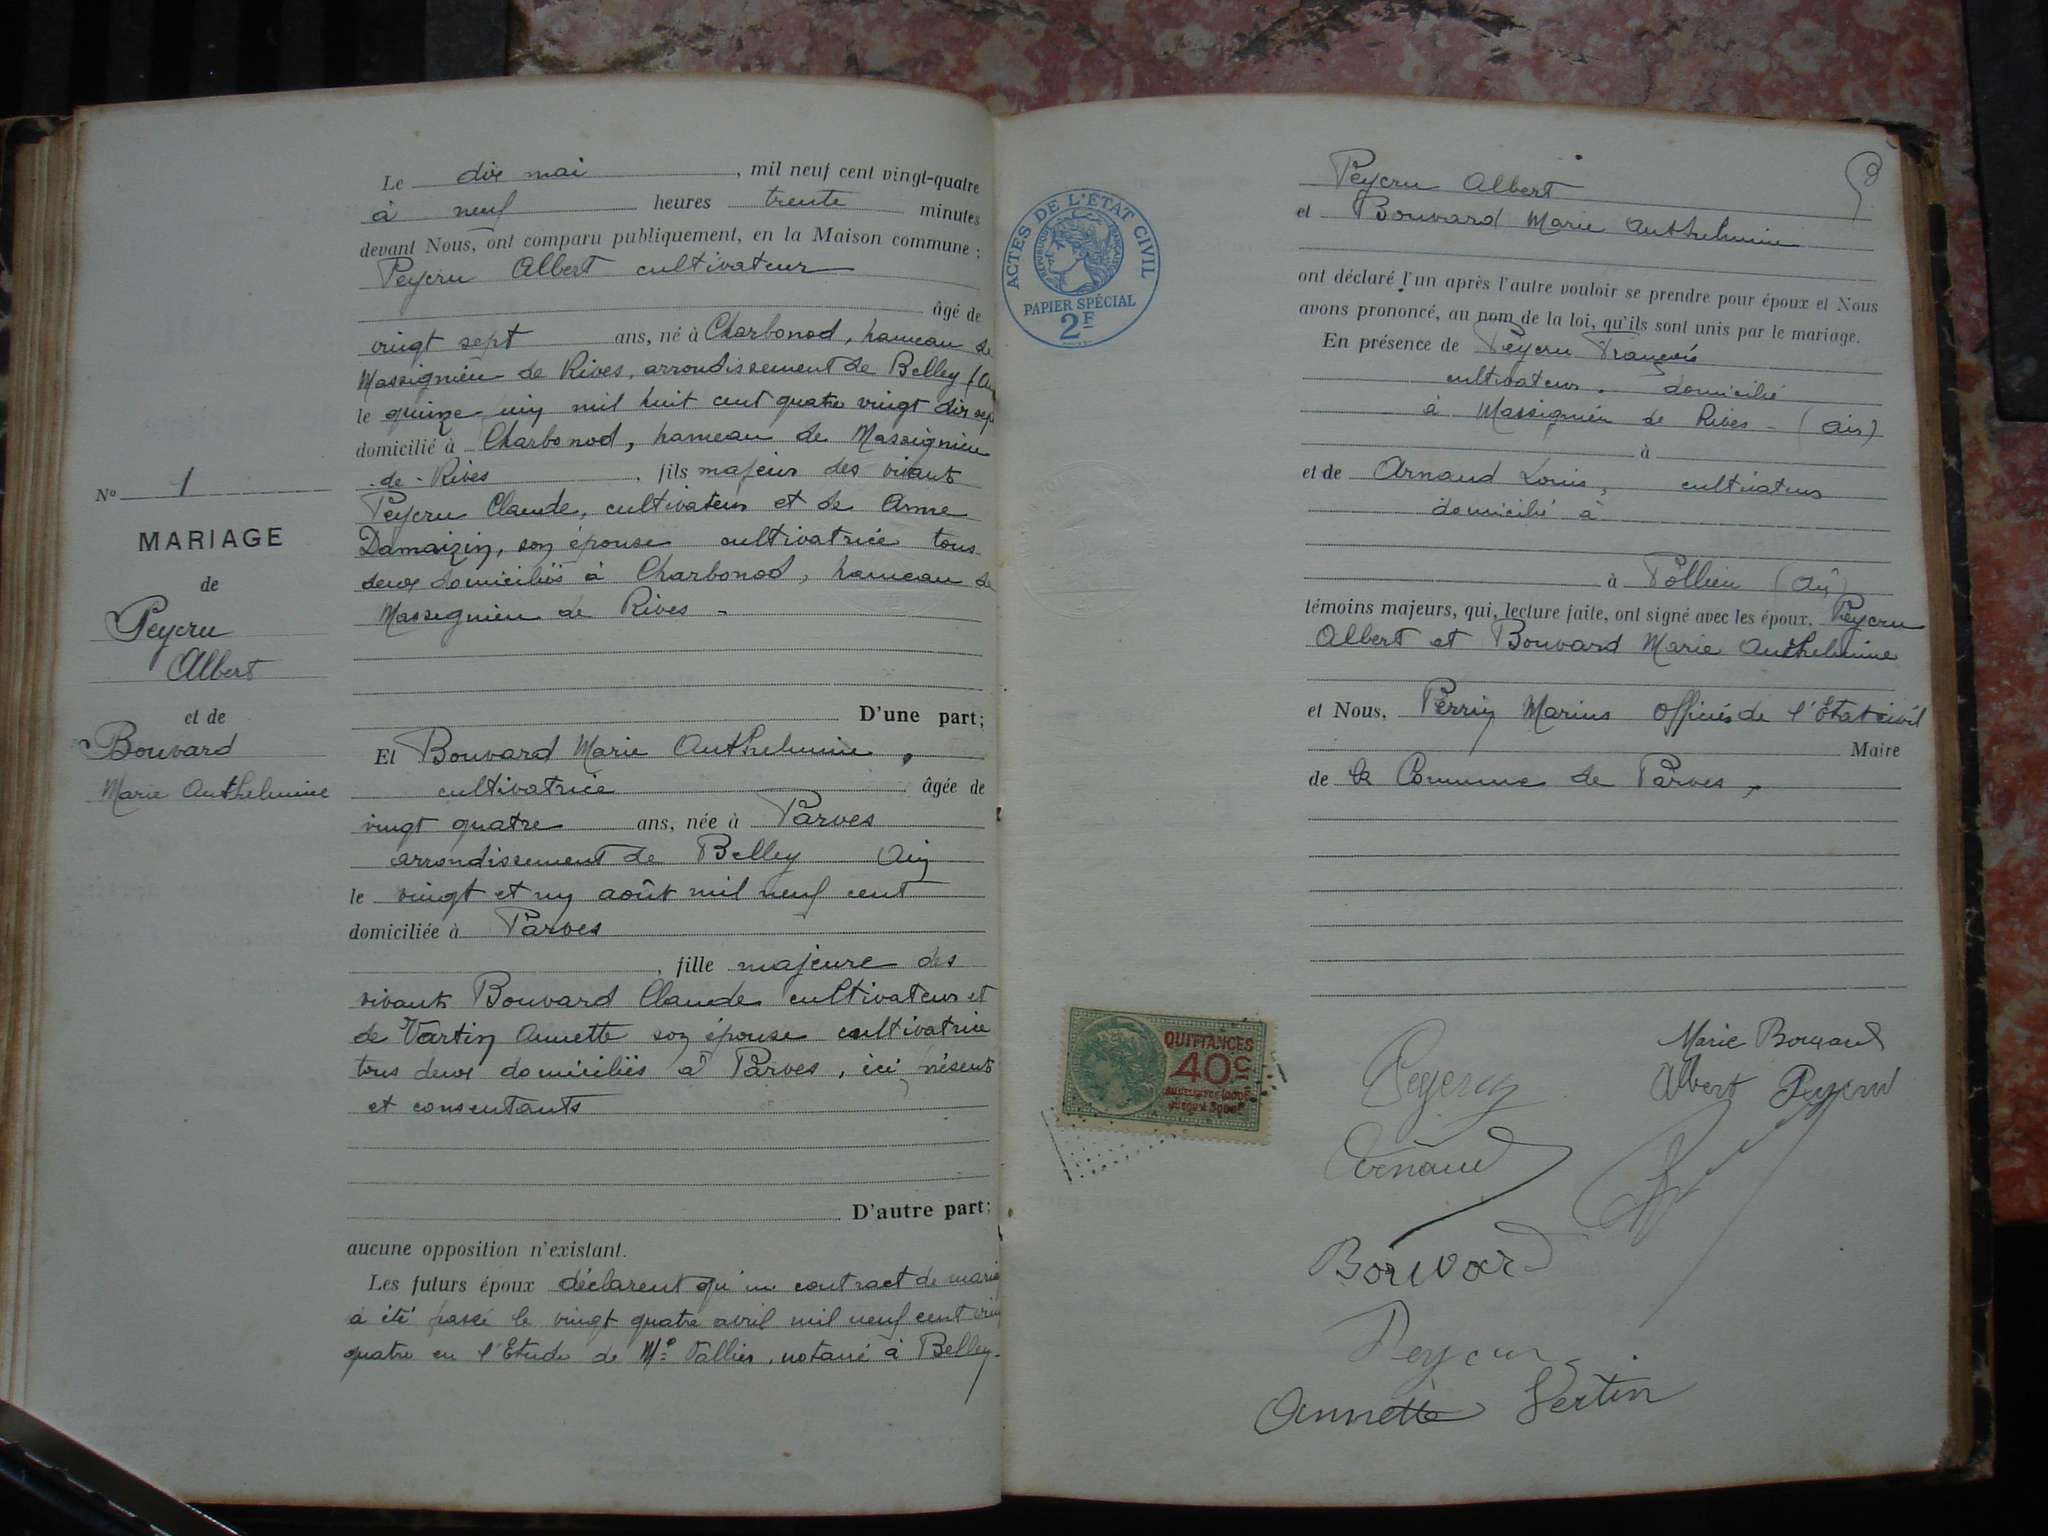 N° 1
MARIAGE
de
Peycru
Albert
et de
Bouvard
Marie Anthelmine
Le dix mai, mil neuf cent vingt-quatre
à neuf heures trente minutes
devant Nous, ont comparu publiquement, en la Maison commune :
Peycru Albert cultivateur
âgé de
vingt sept ans, né à Charbonod, hameau de
Massignieu de Rives, arrondissement de Belley (Ain
le quinze juin mil huit cent quatre vingt dix sept
domicilié à Charbonod, hameau de Massignieu
de Rives, fils majeur des vivants
Peycru Claude, cultivateur et de Anne
Damaizin, son épouse cultivatrice tous
deux domiciliés à Charbonod, hameau de
Massegnieu de Rives -
D'une part;
Et Bouvard Marie Anthelmine,
cultivatrice âgée de
vingt quatre ans, née à Parves
arrondissement de Belley Ain
le vingt et un août mil neuf cent
domiciliée à Parves
, fille majeure des
vivants Bouvard Claude cultivateur et
de Vartin Annette son épouse cultivatrice
tous deux domiciliés à Parves, ici présents
et consentants
D'autre part;
aucune opposition n'existant.
Les futurs époux déclarent qu'un contract de mariag
a été passé le vingt quatre avril mil neuf cent vin
quatre en l'Etude de Me Vallier, notaire à Belley.
ACTES DE L'ETAT CIVIL
REPUBLIQUE FRANÇAISE
PAPIER SPÉCIAL
2F
8
Peycru Albert
et Bouvard Marie Anthelmine
ont déclaré l'un après l'autre vouloir se prendre pour époux et Nous
avons prononcé, au nom de la loi, qu'ils sont unis par le mariage.
En présence de Peycru François
cultivateur, domicilié
à Massignieu de Rives - (Ain)
à
et de Arnaud Louis, cultivateur
domicilié à
à Pollieu (Ain)
témoins majeurs, qui, lecture faite, ont signé avec les époux, Peycru
Albert et Bouvard Marie Anthelmine
et Nous, Perrin Marius Officier de l'Etat civil
Maire
de la Commune de Parves,
QUITTANCES
40c
Marie Bouvard
Albert Peycru
Peycru
Arnaud
Bouvard
Peycru
Annette Vertin